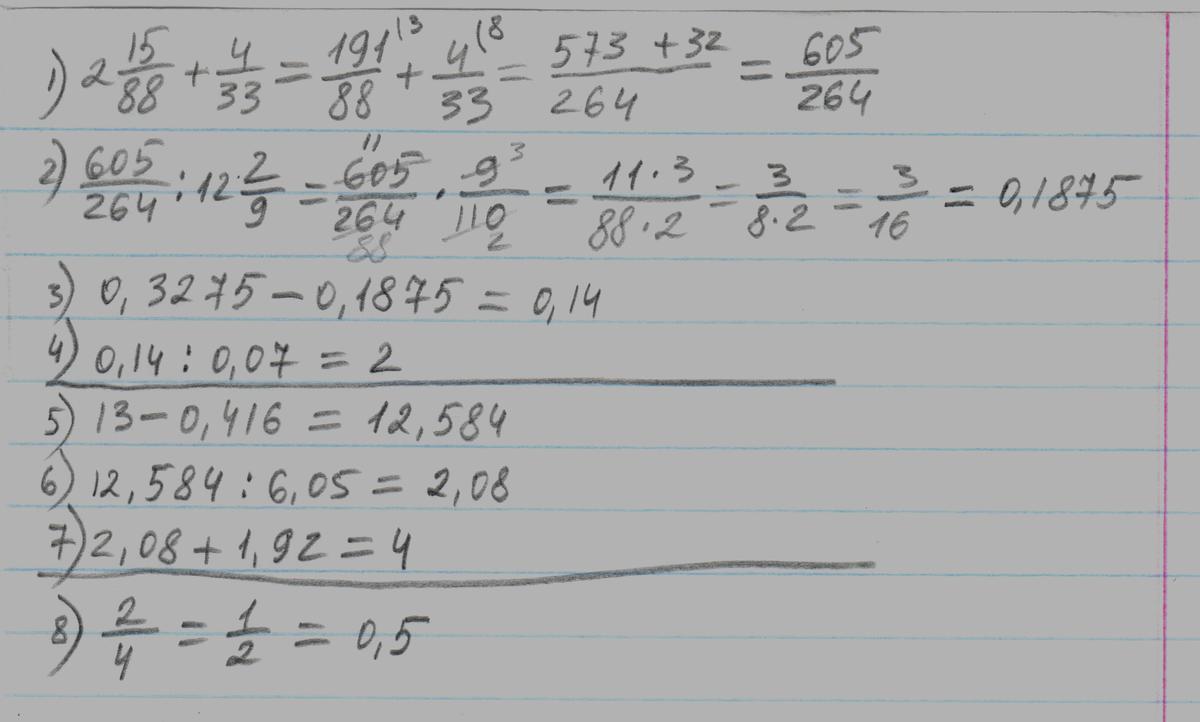 1) 2 15/88 + 4/33 = 191/88 (3 + 4/33 (8 = 573 + 32/264 = 605/264
2) 605/264 : 12 2/9 = 605/264 11 88 · 9/110 3 2 = 11·3/88·2 = 3/8·2 = 3/16 = 0,1875
3) 0,3275 – 0,1875 = 0,14
4) 0,14 : 0,07 = 2
5) 13 – 0,416 = 12,584
6) 12,584 : 6,05 = 2,08
7) 2,08 + 1,92 = 4
8) 2/4 = 1/2 = 0,5